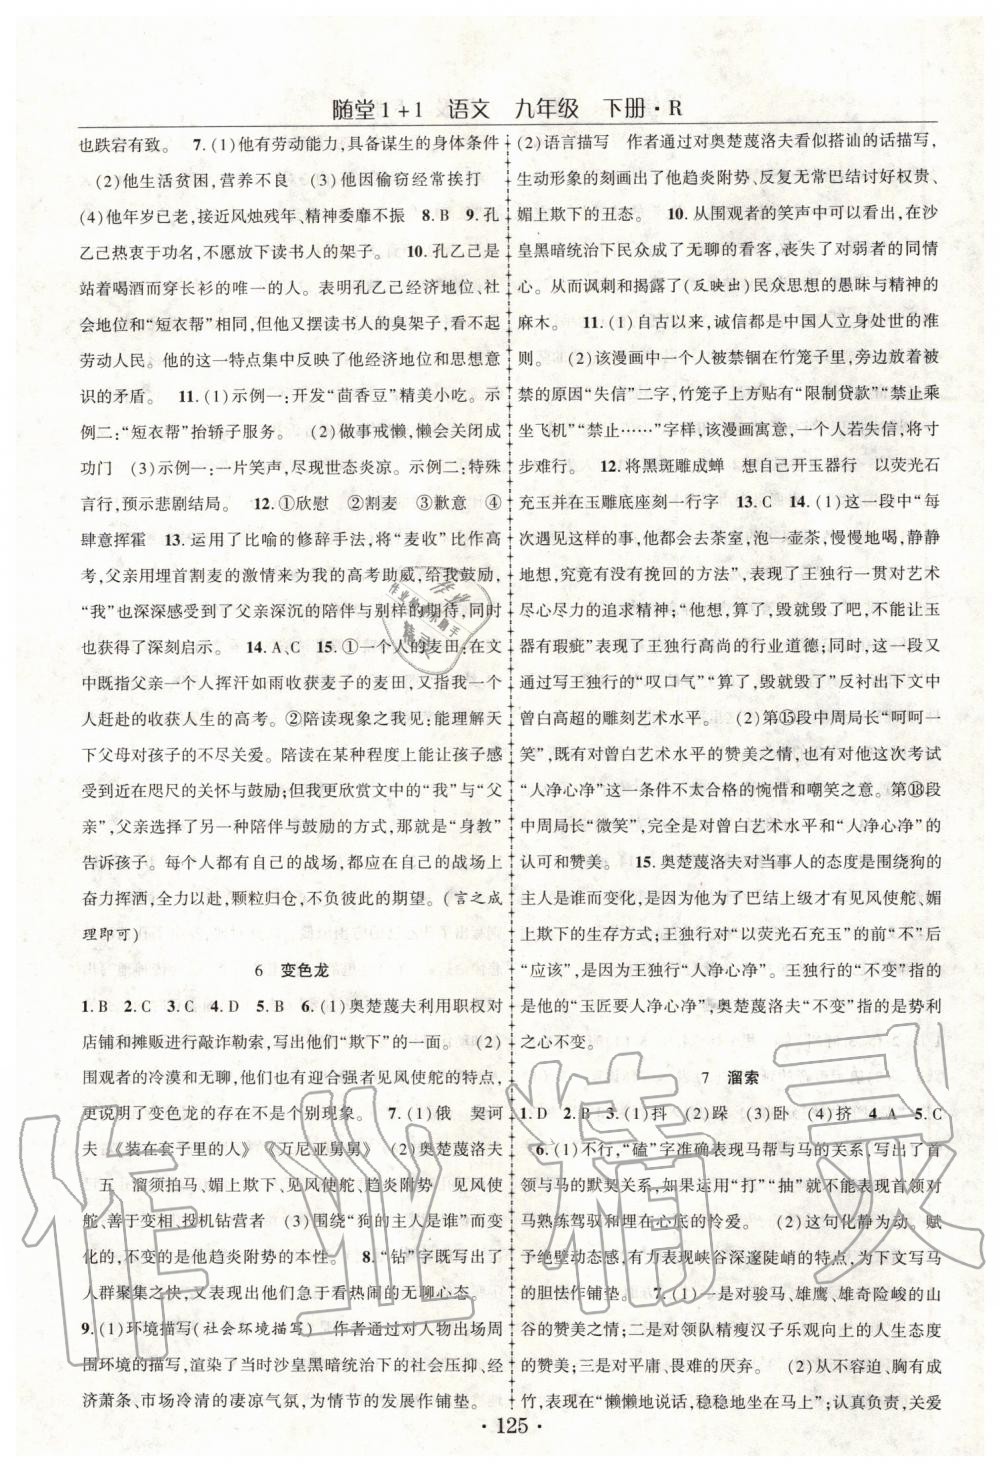 随堂1+1 语文 九年级 下册·R
也跌宕有致。 7. (1)他有劳动能力,具备谋生的身体条件
(2)他生活贫困,营养不良 (3)他因偷窃经常挨打
(4)他年岁已老,接近风烛残年、精神委靡不振 8. B 9. 孔
乙己热衷于功名,不愿放下读书人的架子。 10. 孔乙己是
站着喝酒而穿长衫的唯一的人。表明孔乙己经济地位、社
会地位和“短衣帮”相同,但又摆读书人的臭架子,看不起
劳动人民。他的这一特点集中反映了他经济地位和思想意
识的矛盾。 11. (1)示例一:开发“茴香豆”精美小吃。示
例二:“短衣帮”抬轿子服务。 (2)做事戒懒,懒会关闭成
功门 (3)示例一:一片笑声,尽现世态炎凉。示例二:特殊
言行,预示悲剧结局。 12. ①欣慰 ②割麦 ③歉意 ④
肆意挥霍 13. 运用了比喻的修辞手法,将“麦收”比作高
考,父亲用埋首割麦的激情来为我的高考助威,给我鼓励,
“我”也深深感受到了父亲深沉的陪伴与别样的期待,同时
也获得了深刻启示。 14. A、C 15. ①一个人的麦田:在文
中既指父亲一个人挥汗如雨收获麦子的麦田,又指我一个
人赶赴的收获人生的高考。②陪读现象之我见:能理解天
下父母对孩子的不尽关爱。陪读在某种程度上能让孩子感
受到近在咫尺的关怀与鼓励;但我更欣赏文中的“我”与“父
亲”,父亲选择了另一种陪伴与鼓励的方式,那就是“身教”
告诉孩子。每个人都有自己的战场,都应在自己的战场上
奋力挥洒,全力以赴,颗粒归仓,不负彼此的期望。(言之成
理即可)
6 变色龙
1. B 2. C 3. C 4. D 5. B 6. (1)奥楚蔑夫利用职权对
店铺和摊贩进行敲诈勒索,写出他们“欺下”的一面。 (2)
围观者的冷漠和无聊,他们也有迎合强者见风使舵的特点,
更说明了变色龙的存在不是个别现象。 7. (1)俄 契诃
夫 《装在套子里的人》《万尼亚舅舅》 (2)奥楚蔑洛夫
五 溜须拍马、媚上欺下、见风使舵、趋炎附势 见风使
舵、善于变相、投机钻营者 (3)围绕“狗的主人是谁”而变
化的,不变的是他趋炎附势的本性。 8. “钻”字既写出了
人群聚集之快,又表现了他们急于看热闹的无聊心态。
9. (1)环境描写(社会环境描写) 作者通过对人物出场周
围环境的描写,渲染了当时沙皇黑暗统治下的社会压抑、经
济萧条、市场冷清的凄凉气氛,为情节的发展作铺垫。
(2)语言描写 作者通过对奥楚蔑洛夫看似搭讪的话描写,
生动形象的刻画出了他趋炎附势、反复无常巴结讨好权贵、
媚上欺下的丑态。 10. 从围观者的笑声中可以看出,在沙
皇黑暗统治下民众成了无聊的看客,丧失了对弱者的同情
心。从而讽刺和揭露了(反映出)民众思想的愚昧与精神的
麻木。 11. (1)自古以来,诚信都是中国人立身处世的准
则。 (2)该漫画中一个人被禁锢在竹笼子里,旁边放着被
禁的原因“失信”二字,竹笼子上方贴有“限制贷款”“禁止乘
坐飞机”“禁止……”字样,该漫画寓意,一个人若失信,将寸
步难行。 12. 将黑斑雕成蝉 想自己开玉器行 以荧光石
充玉并在玉雕底座刻一行字 13. C 14. (1)这一段中“每
次遇到这样的事,他都会去茶室,泡一壶茶,慢慢地喝,静静
地想,究竟有没有挽回的方法”,表现了王独行一贯对艺术
尽心尽力的追求精神;“他想,算了,毁就毁了吧,怎么能让玉
器有瑕疵”表现了王独行高尚的行业道德;同时,这一段又
通过写王独行的“叹口气”“算了,毁就毁了”反衬出下文中
曾白高超的雕刻艺术水平。 (2)第⑮段中周局长“呵呵一
笑”,既是对曾白艺术水平的赞美之情,也有对他这次考试
“人净心净”这一条件不太合格的惋惜和嘲笑之意。第⑱段
中周局长“微笑”,完全是对曾白艺术水平和“人净心净”的
认可和赞美。 15. 奥楚蔑洛夫对当事人的态度是围绕狗的
主人是谁而变化,是因为他为了巴结上级才有见风使舵、媚
上欺下的生存方式;王独行的“以荧光石充玉”的前“不”后
“应该”,是表现了王独行“人净心净”。王独行的“不变”指的
是他的“玉匠要人净心净”,奥楚蔑洛夫“不变”指的是势利
之心不变。
7 溜索
1. D 2. B 3. (1)抖 (2)跺 (3)卧 (4)挤 4. A 5. C
6. (1)不行,“磕”字准确表现马帮与马的关系,突出了首
领与马的默契关系,如果运用“打”“抽”就不能表现首领对
马熟练驾驭和埋在心底的怜爱。 (2)这句化静为动。赋
予绝壁动态感,有力表现峡谷深邃陡峭的特点,为下文写马
的胆怯作铺垫。 7. (1)一是对骏马、雄鹰、雄奇险峻的山
谷的赞美之情;二是对领队精瘦汉子乐观向上的人生态度
的赞美;三是对平庸、畏难的厌弃。 (2)从不容迫、胸有成
竹,表现在“懒懒地说话,稳稳地坐在马上”;认真负责,关爱
·125·
作业精灵